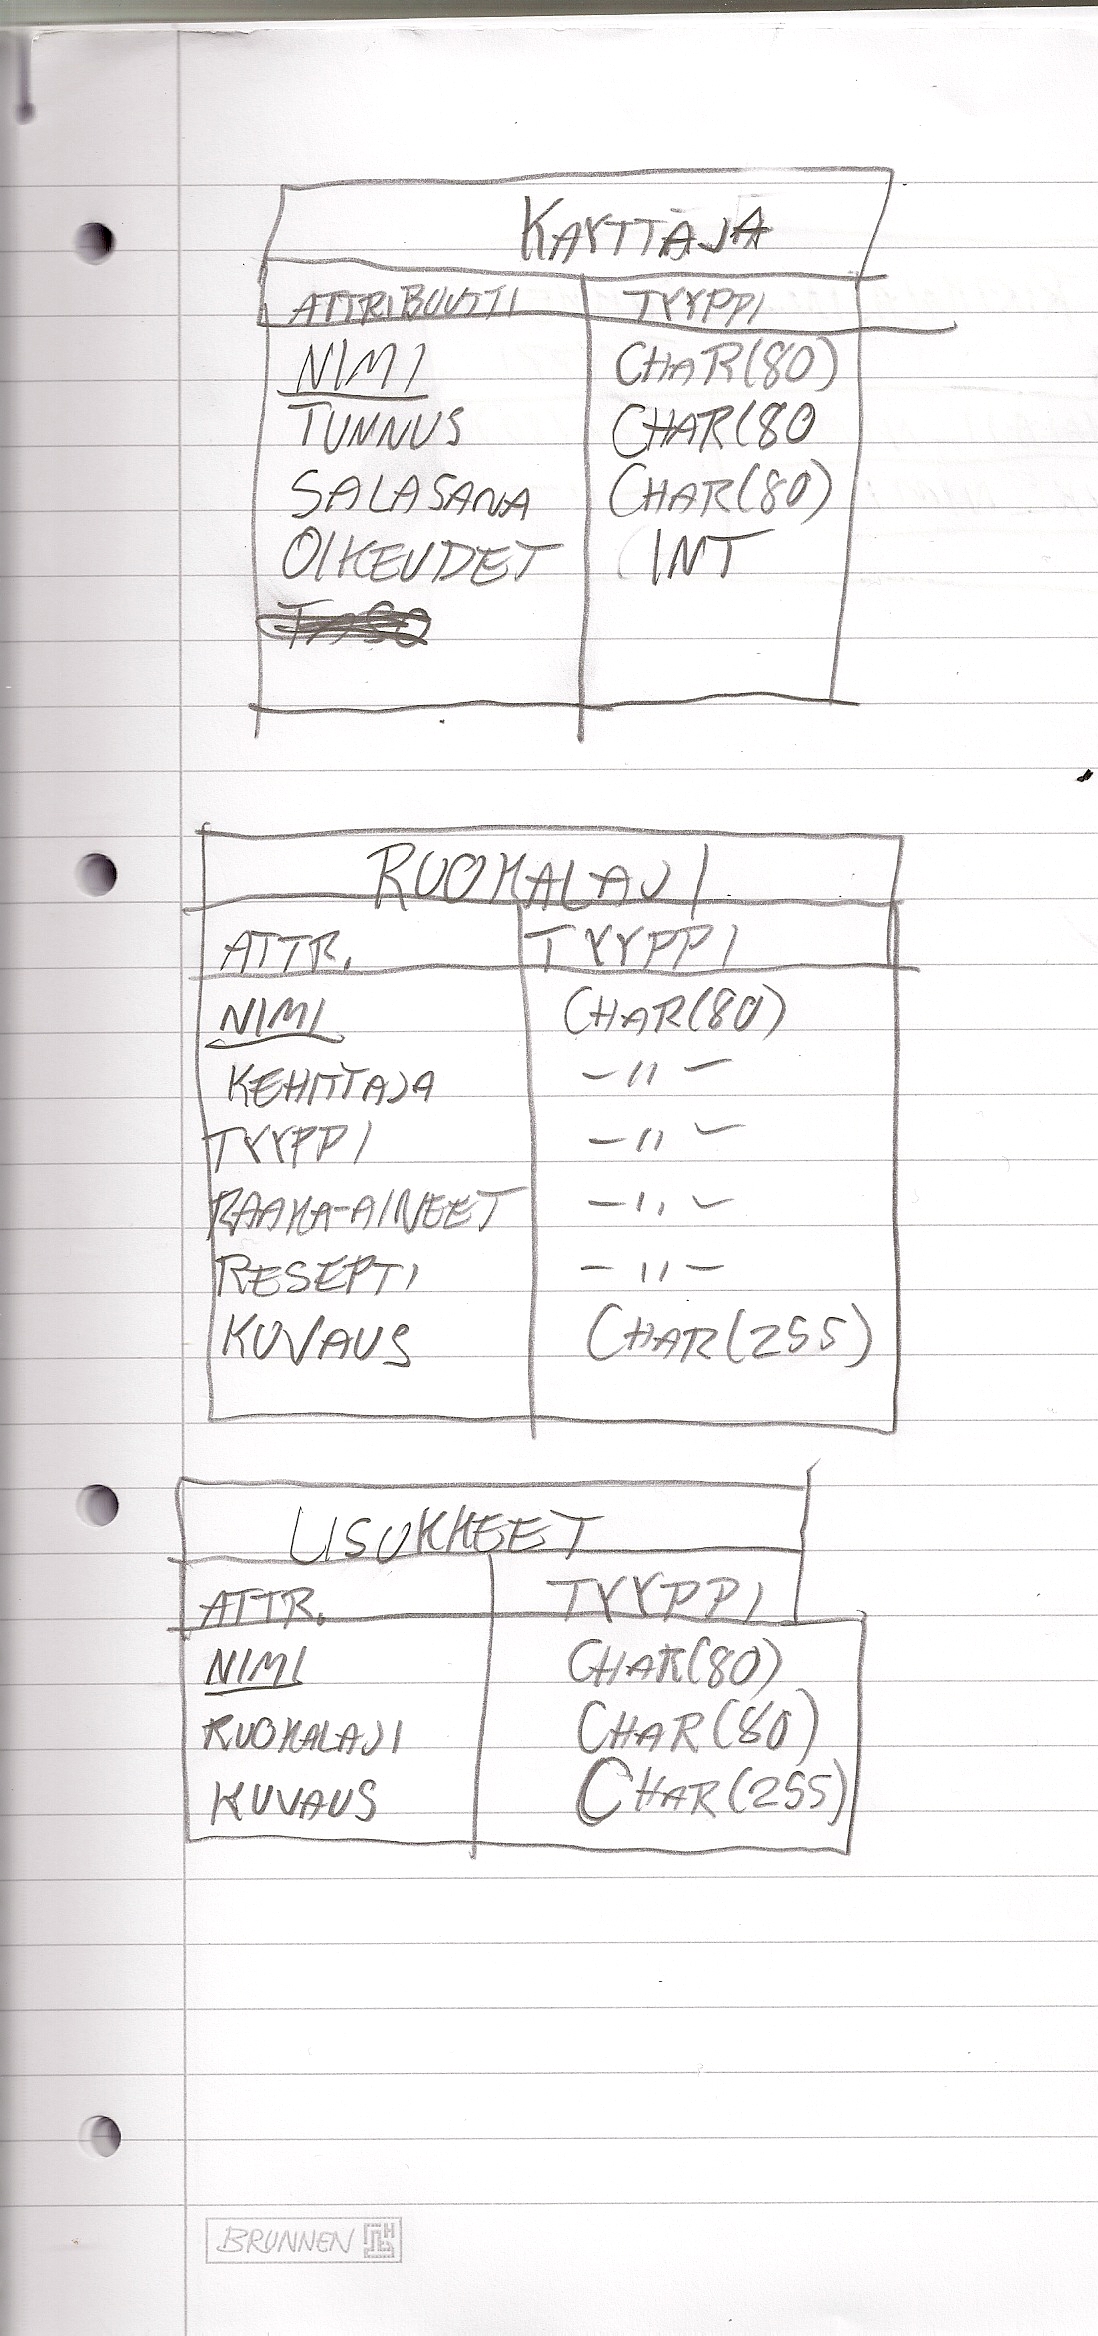 KÄYTTÄJÄ
ATTRIBUUTTI TYYPPI
NIMI CHAR(80)
TUNNUS CHAR(80
SALASANA CHAR(80)
OIKEUDET INT
RUOKALAJI
ATTR. TYYPPI
NIMI CHAR(80)
KEHITTAJA -11-
TYYPPI -11-
RAAKA-AINEET -11-
RESEPTI -11-
KUVAUS CHAR(255)
LISUKKEET
ATTR. TYYPPI
NIMI CHAR(80)
RUOKALAJI CHAR(80)
KUVAUS CHAR(255)
BRUNNEN